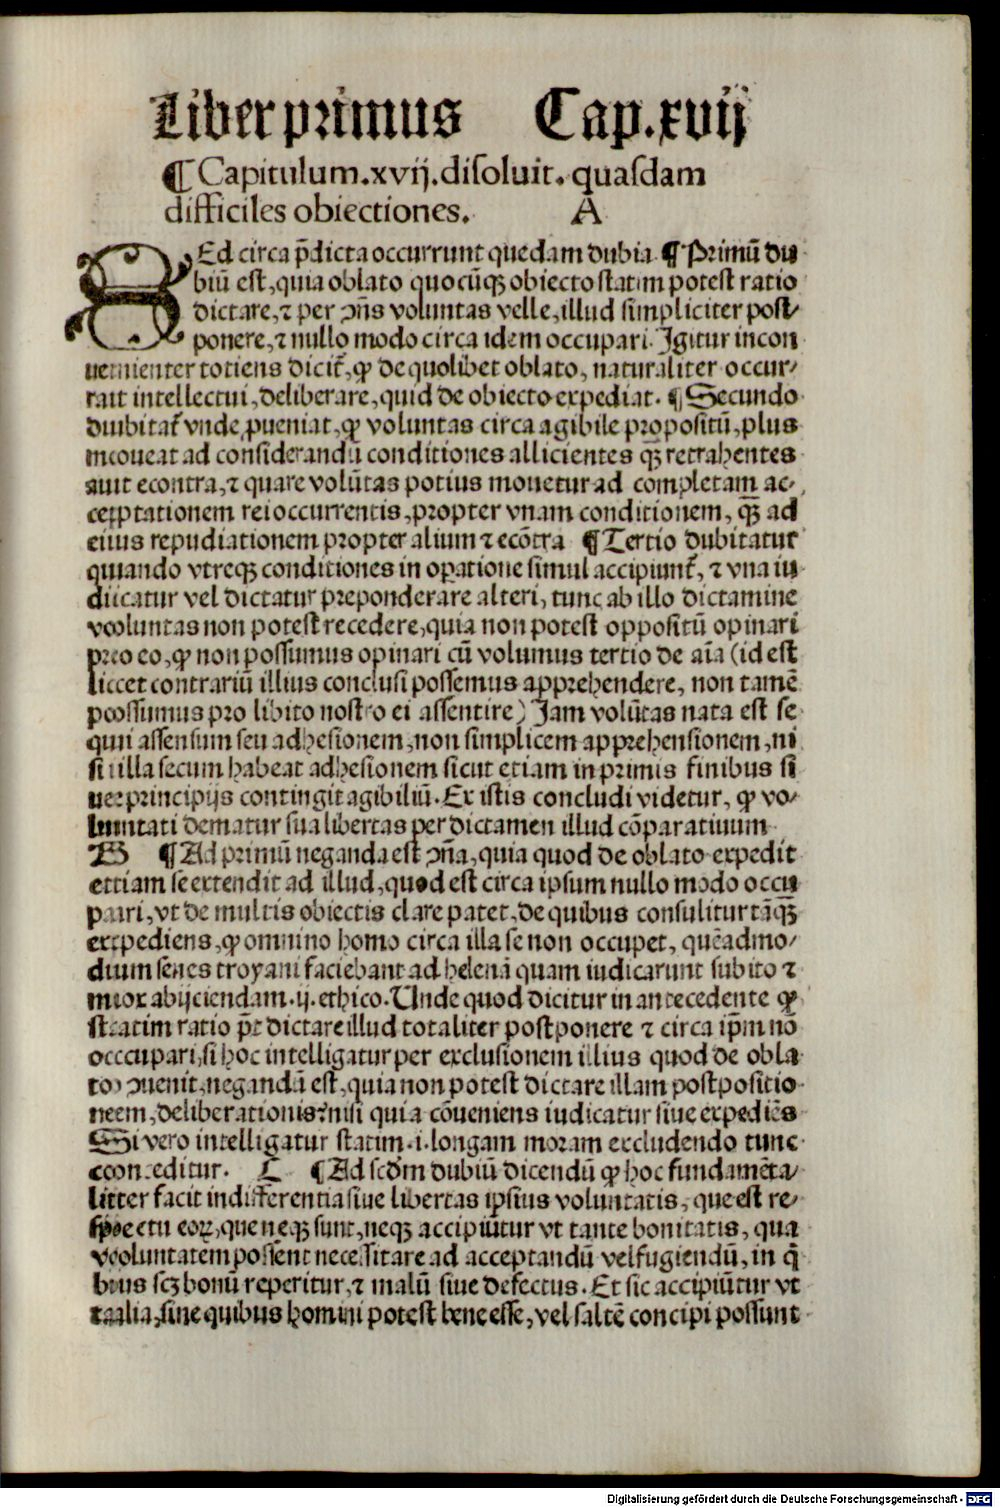 Liber primus Cap. xvij
¶ Capitulum. xvij. disoluit. quasdam
difficiles obiectiones. A
SEd circa p̄dicta occurrunt quedam dubia. ¶ Primū du
biū est, quia oblato quocūqꝫ obiecto statim potest ratio
dictare, ⁊ per ꝯn̄s voluntas velle, illud simpliciter post⸗
ponere, ⁊ nullo modo circa idem occupari. Igitur incon
uenienter totiens dicit᷑, ꝙ de quolibet oblato, naturaliter occur⸗
rait intellectui, deliberare, quid de obiecto expediat. ¶ Secundo
duibitat᷑ vnde ꝓueniat, ꝙ voluntas circa agibile propositū, plus
mooueat ad considerandū conditiones allicientes qꝫ̄ retrahentes
auit econtra, ⁊ quare volūtas potius mouetur ad completam ac⸗
ceiptationem rei occurrentis, propter vnam conditionem, qꝫ̄ ad
eiius repudiationem propter alium ⁊ ecōtra ¶ Tertio dubitatur
quiando vtreqꝫ conditiones in oꝑatione simul accipiunt᷑, ⁊ vna iu
diicatur vel dictatur preponderare alteri, tunc ab illo dictamine
vooluntas non potest recedere, quia non potest oppositū opinari
preo eo, ꝙ non possumus opinari cū volumus tertio de aīa (id est
liccet contrariū illius conclusi possemus apprehendere, non tamē
poossumus pro libito nostro ei assentire) Jam volūtas nata est se
qui assensum seu adhesionem, non simplicem apprehensionem, ni
si illa secum habeat adhesionem sicut etiam in primis finibus si
ue principijs contingit agibiliū. Ex istis concludi videtur, ꝙ vo⸗
luntati dematur sua libertas per dictamen illud cōparatiuum
B ¶ Ad primū neganda est ꝯn̄a, quia quod de oblato expedit
ettiam se extendit ad illud, quod est circa ipsum nullo modo occu
pairi, vt de multis obiectis clare patet, de quibus consulitur tāqꝫ̄
exxpediens, ꝙ omnino homo circa illa se non occupet, quēadmo⸗
dium senes troyani faciebant ad helenā quam iudicarunt subito ⁊
miox abijciendam. ij. ethico. Unde quod dicitur in antecedente ꝙ
statim ratio p̄t dictare illud totaliter postponere ⁊ circa ip̄m nō
occcupari, si hoc intelligatur per exclusionem illius quod de obla
to ꝯuenit, negandū est, quia non potest dictare illam postpositio
neem, deliberationis, nisi quia cōueniens iudicatur siue expediēs
Si vero intelligatur statim .i. longam moram excludendo tunc
conceditur. C ¶ Ad scd̄m dubiū dicendū ꝙ hoc fundamēta⸗
litter facit indifferentia siue libertas ipsius voluntatis, que est re⸗
spectu eoꝝ, que neqꝫ sunt, neqꝫ accipiūtur vt tante bonitatis, qua
vooluntatem possent necessitare ad acceptandū vel fugiendū, in q̄
bus scꝫ bonū reperitur, ⁊ malū siue defectus. Et sic accipiūtur vt
taalia, sine quibus homini potest bene esse, vel saltē concipi possunt
Digitalisierung gefördert durch die Deutsche Forschungsgemeinschaft - DFG